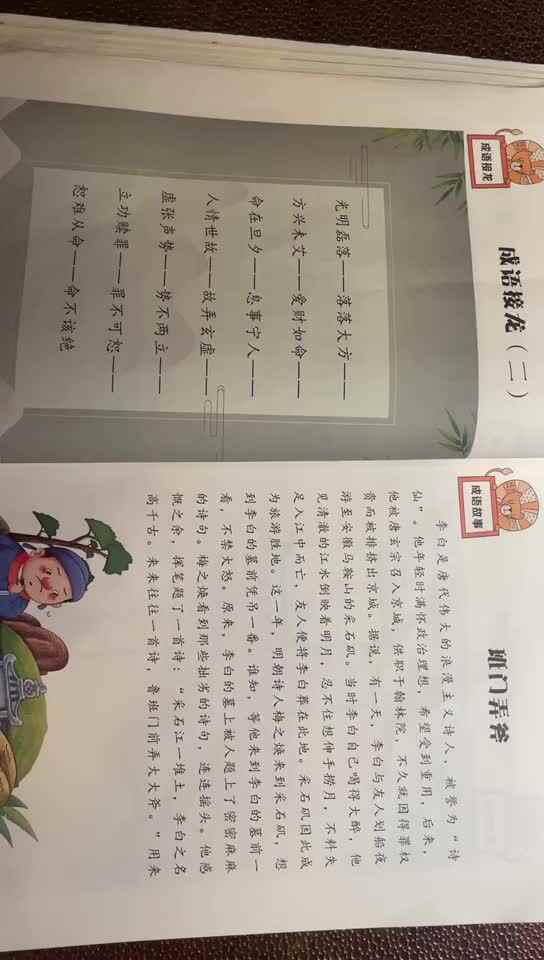 成语接龙
成语接龙（二）
光明磊落——落落大方——
方兴未艾——爱财如命——
命在旦夕——息事宁人——
人情世故——故弄玄虚——
虚张声势——势不两立——
立功赎罪——罪不可恕——
恕难从命——命不该绝
成语故事
班门弄斧
李白是唐代伟大的浪漫主义诗人，被誉为“诗
仙”。他年轻时满怀政治理想，希望受到重用，后来，
他被唐玄宗召入京城，供职于翰林院，不久就因得罪权
贵而被排挤出京城。据说，有一天，李白与友人划船夜
游至安徽马鞍山的采石矶。当时李白自己喝得大醉，他
见清澈的江水倒映着明月，忍不住想伸手捞月，不料失
足入江中而亡，友人便将李白葬在此地。采石矶因此成
为旅游胜地。这一年，明朝诗人梅之焕来到采石矶，想
到李白的墓前凭吊一番。谁知，等他来到李白的墓前一
看，不禁大怒。原来，李白的墓上被人题上了密密麻麻
的诗句。梅之焕看到那些拙劣的诗句，连连摇头。他感
慨之余，挥笔题了一首诗：“采石江一堆土，李白之名
高千古。来来往往一首诗，鲁班门前弄大大斧。”用来